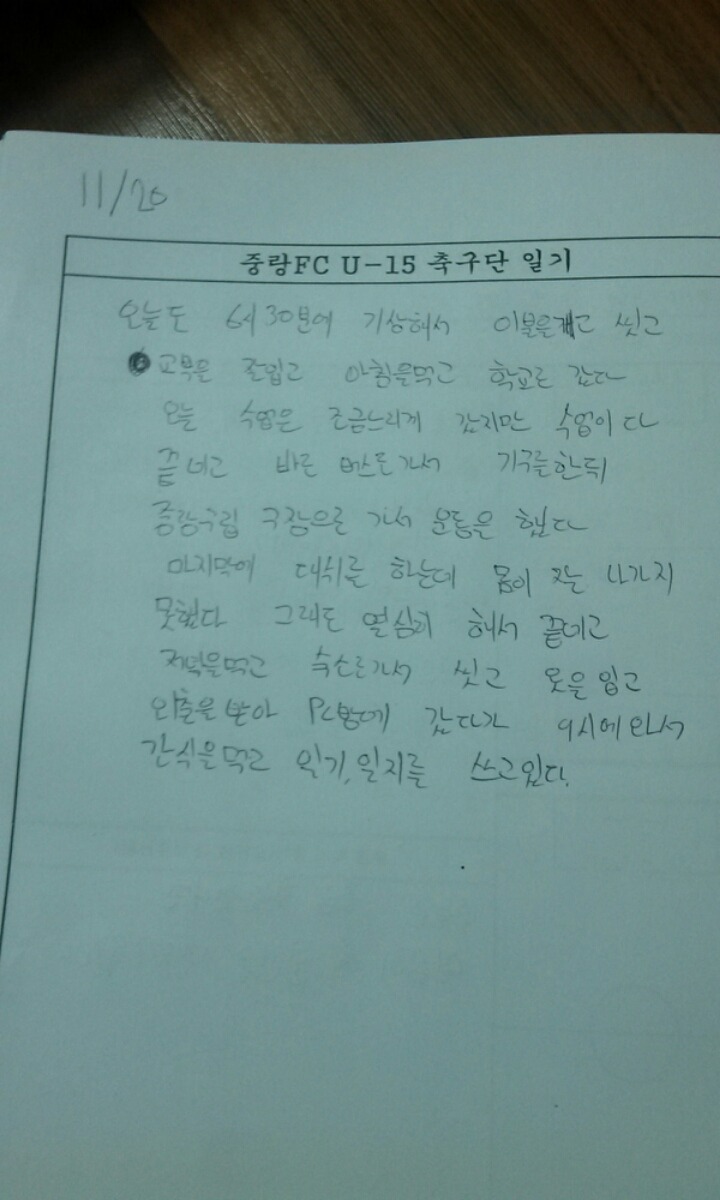 11/20
중랑FC U-15 축구단 일기
오늘도 6시 30분에 기상해서 이불을개고 씻고
교복을 갈입고 아침을먹고 학교로 갔다
오늘 수업은 조금느리게 갔지만 수업이 다
끝내고 바로 버스로가서 기구를한뒤
중랑구립 구장으로 가서 운동을 했다
마지막에 대쉬를 하는데 몸이 잘 나가지
못했다 그래도 열심히 해서 끝내고
저녁을먹고 숙소로가서 씻고 옷을 입고
외출을 받아 PC방에 갔다가 9시에 와서
간식을먹고 일기,일지를 쓰고있다.